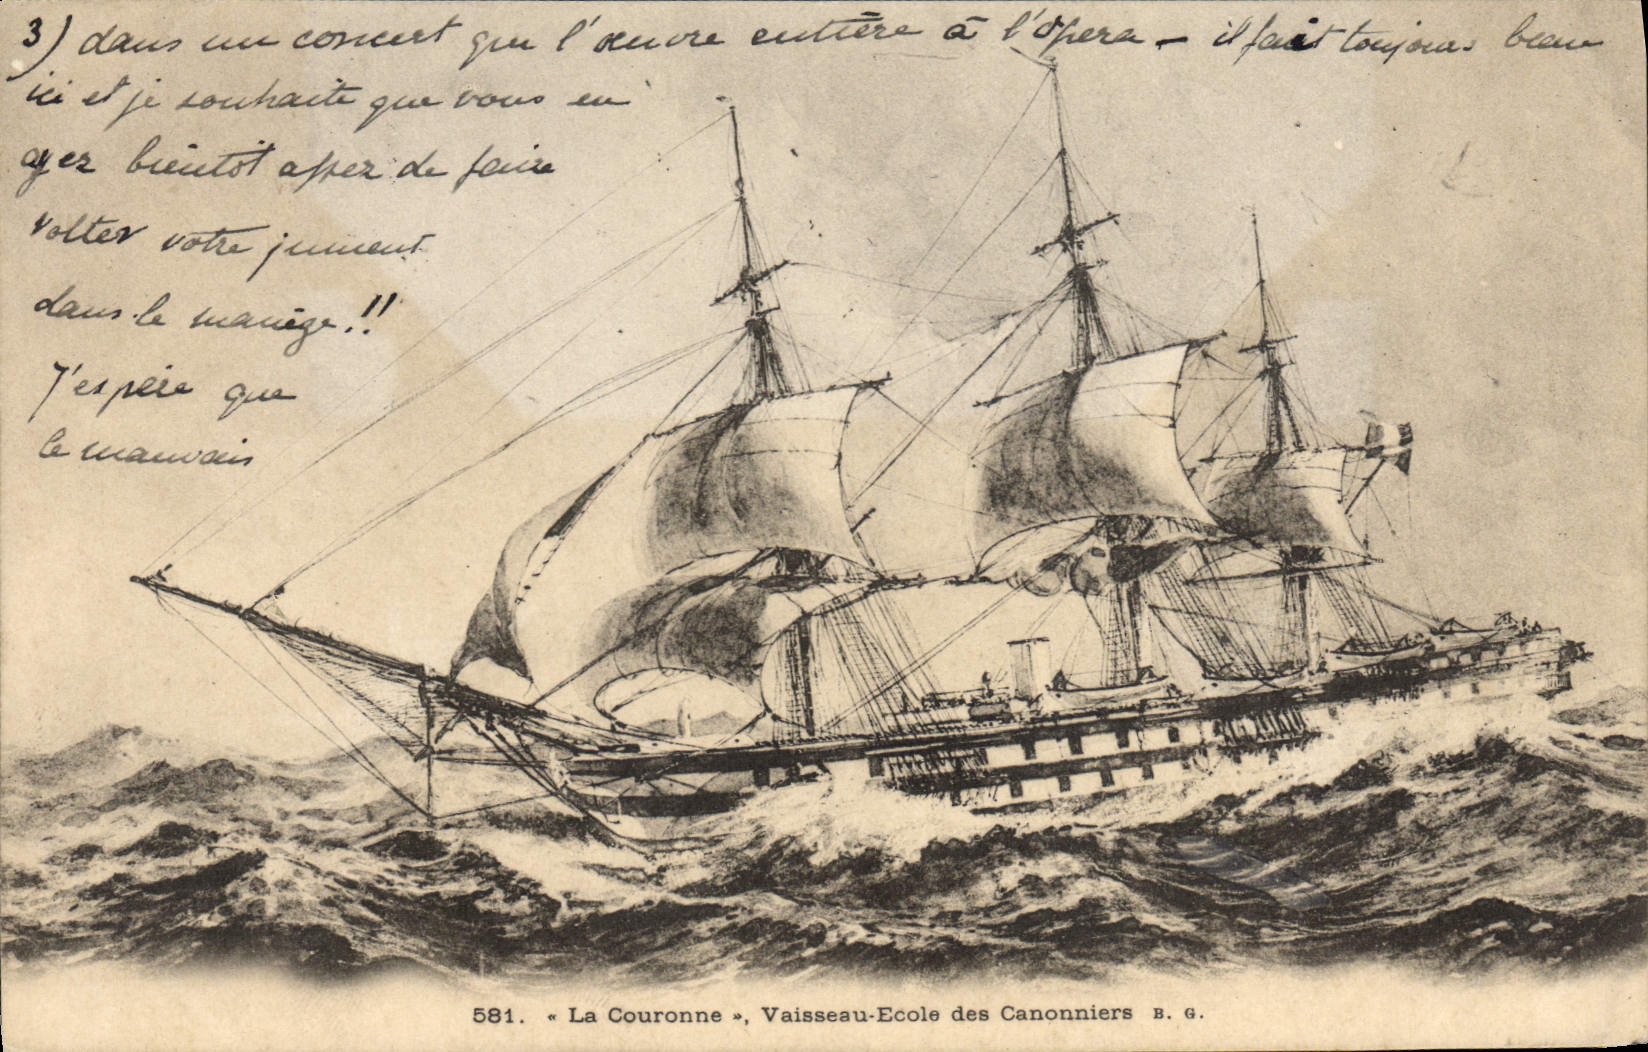 3) dans un concert que l'œuvre entière à l'Opera — il fait toujours beau
ici et je souhaite que vous en
ayez bientôt assez de faire
volter votre jument
dans le manège!!
J'espère que
le mauvais
581. « La Couronne », Vaisseau-Ecole des Canonniers B. G.